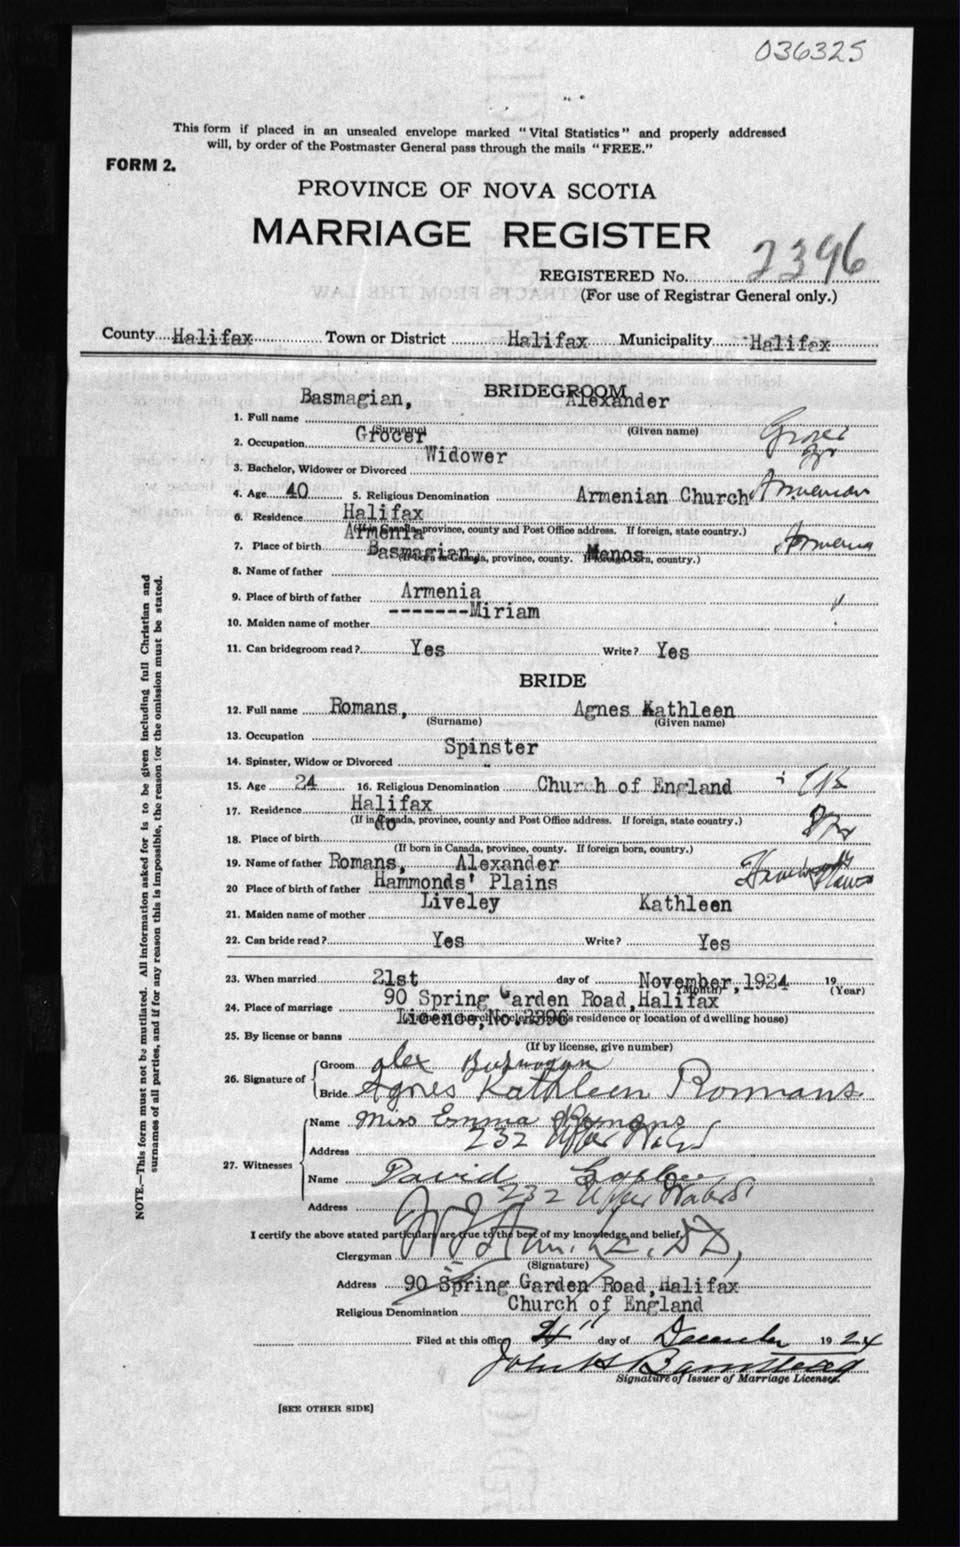 036325
This form if placed in an unsealed envelope marked "Vital Statistics" and properly addressed
will, by order of the Postmaster General pass through the mails "FREE."
FORM 2.
PROVINCE OF NOVA SCOTIA
MARRIAGE REGISTER
REGISTERED No. 2396
(For use of Registrar General only.)
County Halifax Town or District Halifax Municipality Halifax
BRIDEGROOM
1. Full name Basmagian, Alexander
(Surname) (Given name)
2. Occupation Grocer
3. Bachelor, Widower or Divorced Widower
4. Age 40 5. Religious Denomination Armenian Church Armenian
6. Residence Halifax
(If in Canada, province, county and Post Office address. If foreign, state country.)
7. Place of birth Armenia Armenia
(If born in Canada, province, county. If foreign born, country.)
8. Name of father Basmagian, Manos
9. Place of birth of father Armenia
10. Maiden name of mother -------Miriam
11. Can bridegroom read? Yes Write? Yes
BRIDE
12. Full name Romans, Agnes Kathleen
(Surname) (Given name)
13. Occupation
14. Spinster, Widow or Divorced Spinster
15. Age 24 16. Religious Denomination Church of England
17. Residence Halifax
(If in Canada, province, county and Post Office address. If foreign, state country.)
18. Place of birth do
(If born in Canada, province, county. If foreign born, country.)
19. Name of father Romans, Alexander
20 Place of birth of father Hammonds' Plains
21. Maiden name of mother Liveley Kathleen
22. Can bride read? Yes Write? Yes
23. When married 21st day of November, 1924 19
(Month) (Year)
24. Place of marriage 90 Spring Garden Road, Halifax
residence or location of dwelling house)
25. By license or banns Licence, No. 2396
(If by license, give number)
26. Signature of
Groom Alex
Bride Agnes Kathleen Romans
27. Witnesses
Name Miss Emma Romans
Address 232 Upper Water St
Name David
Address 232 Upper Water St
I certify the above stated particulars are true to the best of my knowledge and belief,
Clergyman
(Signature)
Address 90 Spring Garden Road, Halifax
Religious Denomination Church of England
Filed at this office 4" day of December 1924
Signature of Issuer of Marriage Licenses.
[SEE OTHER SIDE]
NOTE.—This form must not be mutilated. All information asked for is to be given including full Christian and
surnames of all parties, and if for any reason this is impossible, the reason for the omission must be stated.